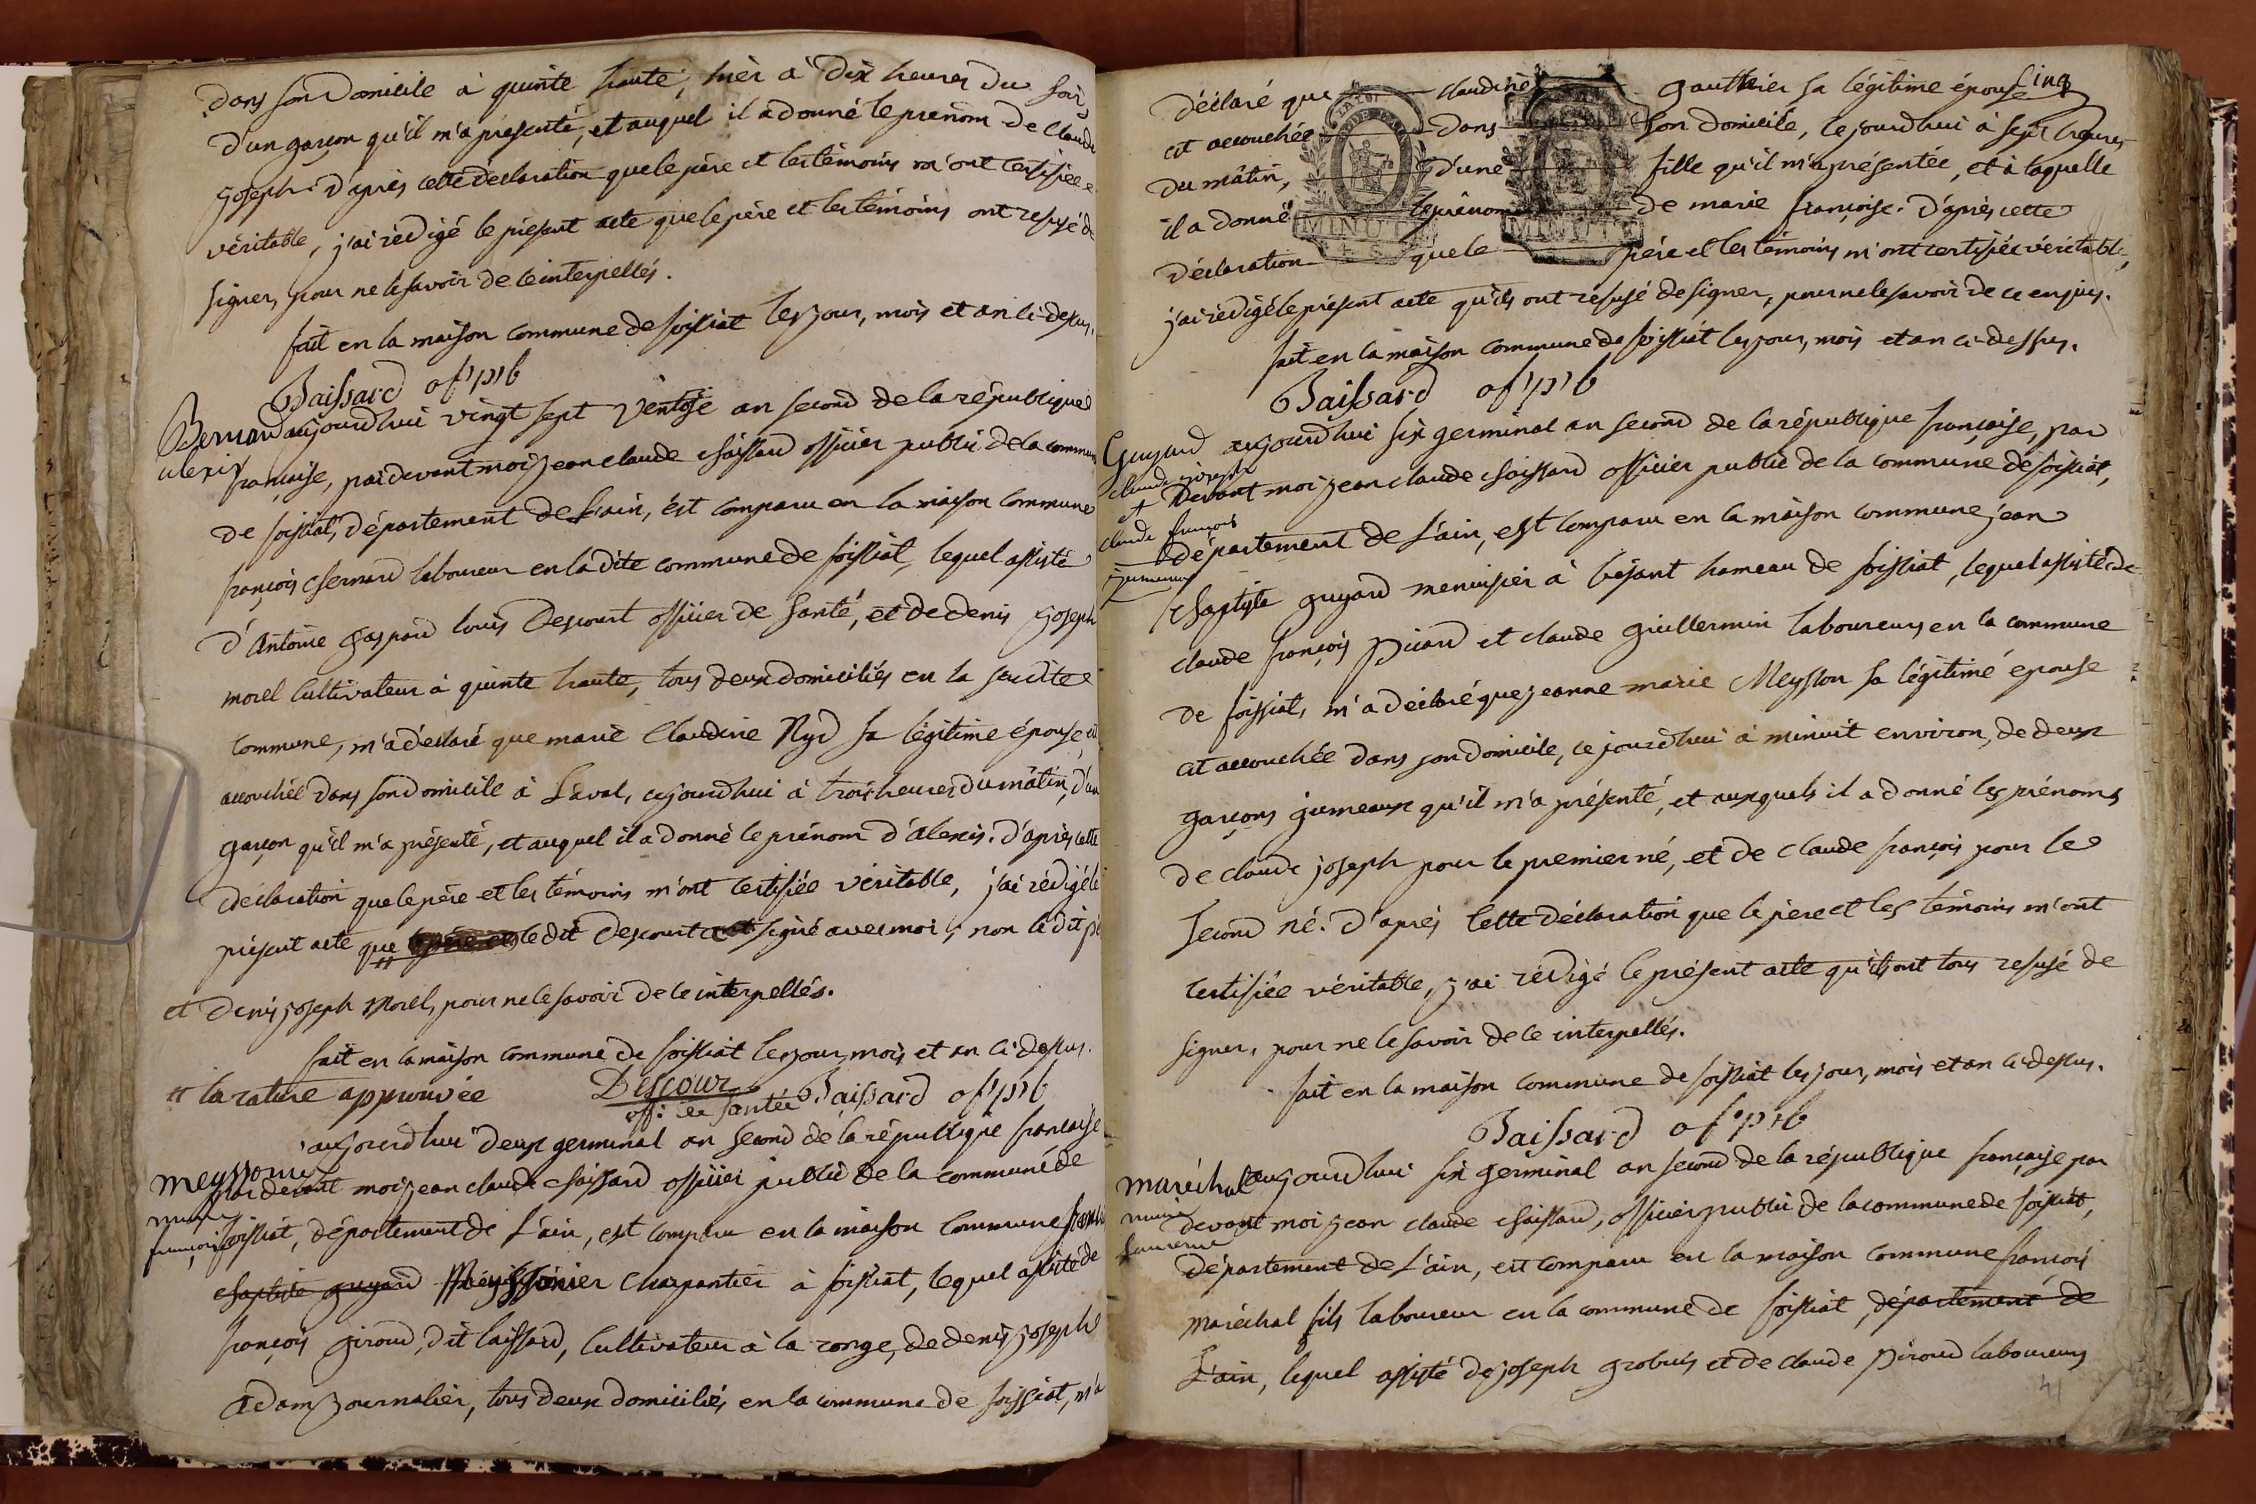 dans son Domicile à quinte haute, hièr à Dix heures du soir
d'un garçon qu'il m'a présenté, et auquel il a donné le prénom de claude
joseph. d'après cette déclaration que le père et les témoins m'ont certifiée
véritable, j'ai rédigé le présent acte que le père et les témoins ont refusé de
signer, pour ne le savoir de ce interpellés.
fait en la maison commune de foissiat les jour, mois et an ci-dessus.
Baissard of' p'b
Bernard
alexis
aujourdhui vingt sept Ventose an second de la république
française, par devant moi jean claude Baissard officier public de la commune
de foissiat, département de L'ain, est comparu en la maison commune
françois Bernard laboureur en la dite commune de foissiat, lequel assisté
d'Antoine gaspard louis Descourt officier de santé, et de denis joseph
morel Cultivateur à quinte haute, tous deux domiciliés en la susdite
commune, m'a déclaré que marie Claudine Nyd sa légitime épouse, est
accouchée dans son domicile à Laval, cejourdhui à trois heures du mâtin, d'un
garçon qu'il m'a présenté, et auquel il a donné le prénom d'alexis. d'après cette
déclaration que le père et les témoins m'ont certifiée véritable, j'ai rédigé le
présent acte que le dit Descourt a signé avec moi, non le dit
et denis joseph Morel, pour ne le savoir de ce interpellés.
fait en la maison commune de foissiat les jour, mois et an ci-dessus.
# la rature approuvée
Descour
off: de santée
Baissard of' p'b
meyssonnier
marie
françoise
aujourdhui deux germinal an second de la république française
par devant moi jean claude Baissard officier public de la commune de
foissiat, département de L'ain, est comparu en la maison commune
Baptiste guyard Meyssonier charpantier à foissiat, lequel assisté de
françois giroud, dit laissard, Cultivateur à la ronge, de denis joseph
Adam journalier, tous deux domiciliés en la commune de foissiat, m'a
cinq
déclaré que claudine gauthier sa légitime épouse
est accouchée dans son domicile, cejourdhui à sept heures
du mâtin, d'une fille qu'il m'a présentée, et à laquelle
il a donné le prénom de marie françoise. d'après cette
déclaration que le père et les témoins m'ont certifiée véritable,
MINUTE
MINUTE
j'ai rédigé le présent acte qu'ils ont refusé de signer, pour ne le savoir de ce enquis.
fait en la maison commune de foissiat les jour, mois et an ci-dessus.
Baissard of' p'b
Guyard
claude joseph
et
claude françois
jumeaux
aujourdhui six germinal an second de la république française, par
devant moi jean claude Baissard officier public de la commune de foissiat,
département de L'ain, est comparu en la maison commune jean
Baptiste guyard menuisier à béjant hameau de foissiat, lequel assisté de
claude françois Picard et claude guillermin laboureurs en la commune
de foissiat, m'a déclaré que jeanne marie Meysson sa légitime epouse
est accouchée dans son domicile, ce jourdhui à minuit environ, de deux
garçons jumeaux qu'il m'a présenté, et auxquels il a donné les prénoms
de claude joseph pour le premier né, et de claude françois pour le
second né. d'après cette déclaration que le père et les témoins m'ont
certifiée véritable, j'ai rédigé le présent acte qu'ils ont tous refusé de
signer, pour ne le savoir de ce interpellés.
fait en la maison commune de foissiat les jour, mois et an ci-dessus.
Baissard of' p'b
maréchal
marie
aujourdhui six germinal an second de la république française par
devant moi jean claude Baissard, officier public de la commune de foissiat,
département de L'ain, est comparu en la maison commune françois
maréchal fils laboureur en la commune de foissiat, département de
L'ain, lequel assisté de joseph grobuis et de claude Piroud laboureurs
41